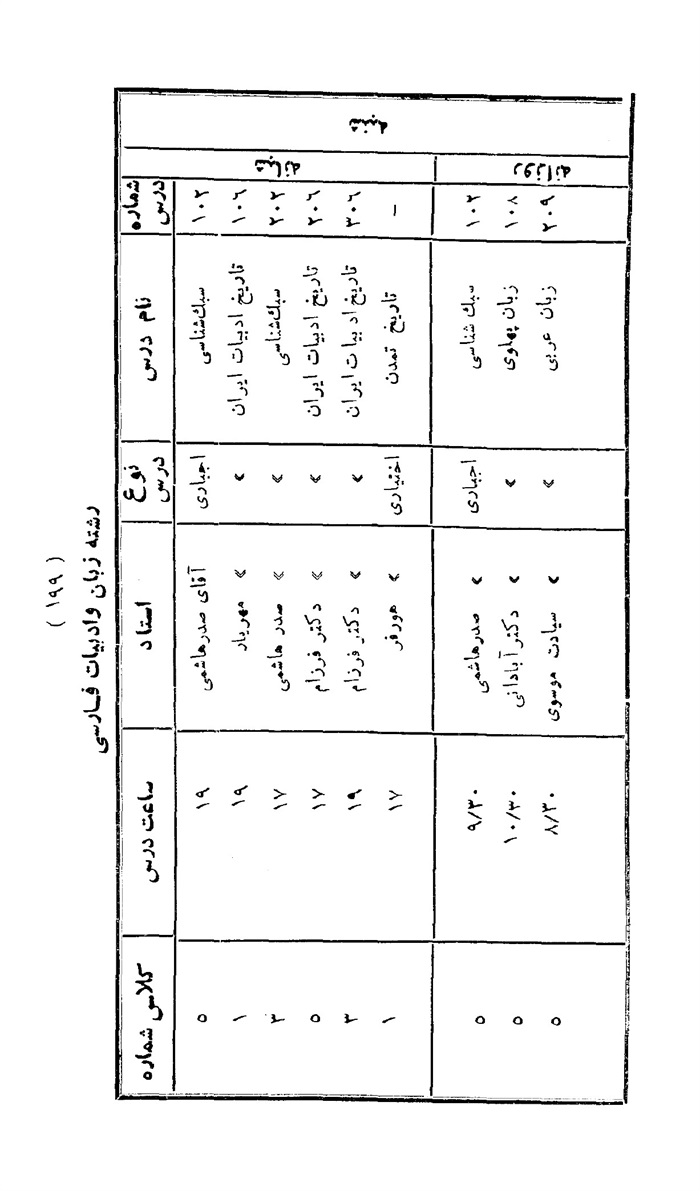 ( ۱۹۹ )
رشته زبان وادبیات فارسی
شماره درس نام درس نوع درس استاد ساعت درس کلاس شماره
شنبه
شبانه
۱۰۲ سبک‌شناسی اجباری آقای صدرهاشمی ۱۹ ۵
۱۰۶ تاریخ ادبیات ایران » » مهریار ۱۹ ۱
۲۰۲ سبک‌شناسی » » صدر هاشمی ۱۷ ۳
۲۰۶ تاریخ ادبیات ایران » » دکتر فرزام ۱۷ ۵
۳۰۶ تاریخ ادبیات ایران » » دکتر فرزام ۱۹ ۳
- تاریخ تمدن اختیاری » هورفر ۱۷ ۱
روزانه
۱۰۲ سبک شناسی اجباری » صدرهاشمی ۹/۳۰ ۵
۱۰۸ زبان پهلوی » » دکتر آبادانی ۱۰/۳۰ ۵
۲۰۹ زبان عربی » » سیادت موسوی ۸/۳۰ ۵